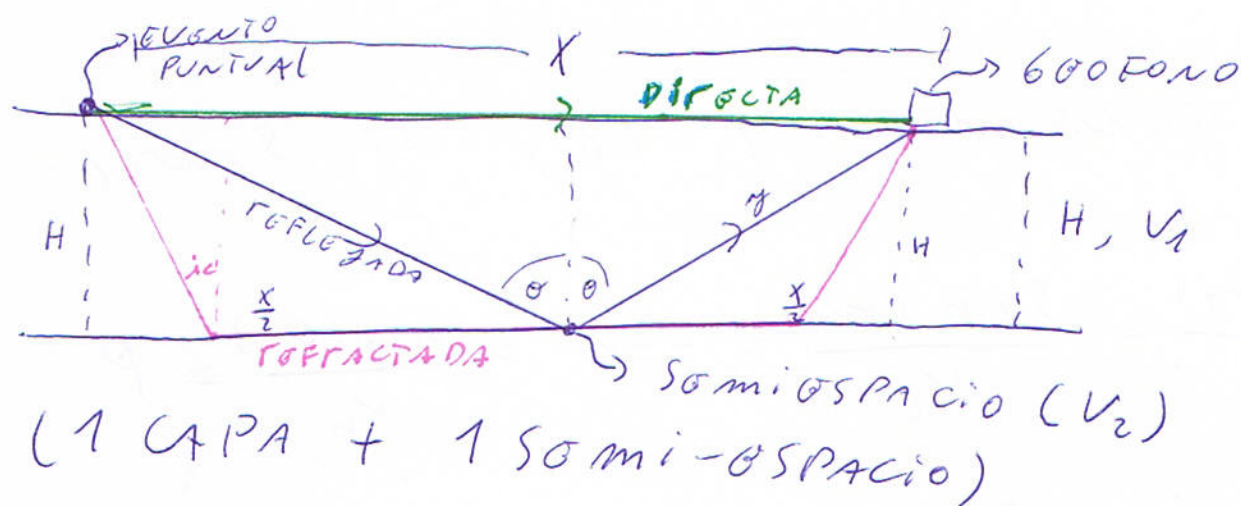 EVENTO
PUNTUAl
X
GEOFONO
DIrECTA
H
rEFLEJADA
y
H
H, V1
ic
X/2
θ θ
X/2
rEFrACTADA
SEmiESPACiO (V2)
(1 CAPA + 1 SEmi-ESPACiO)